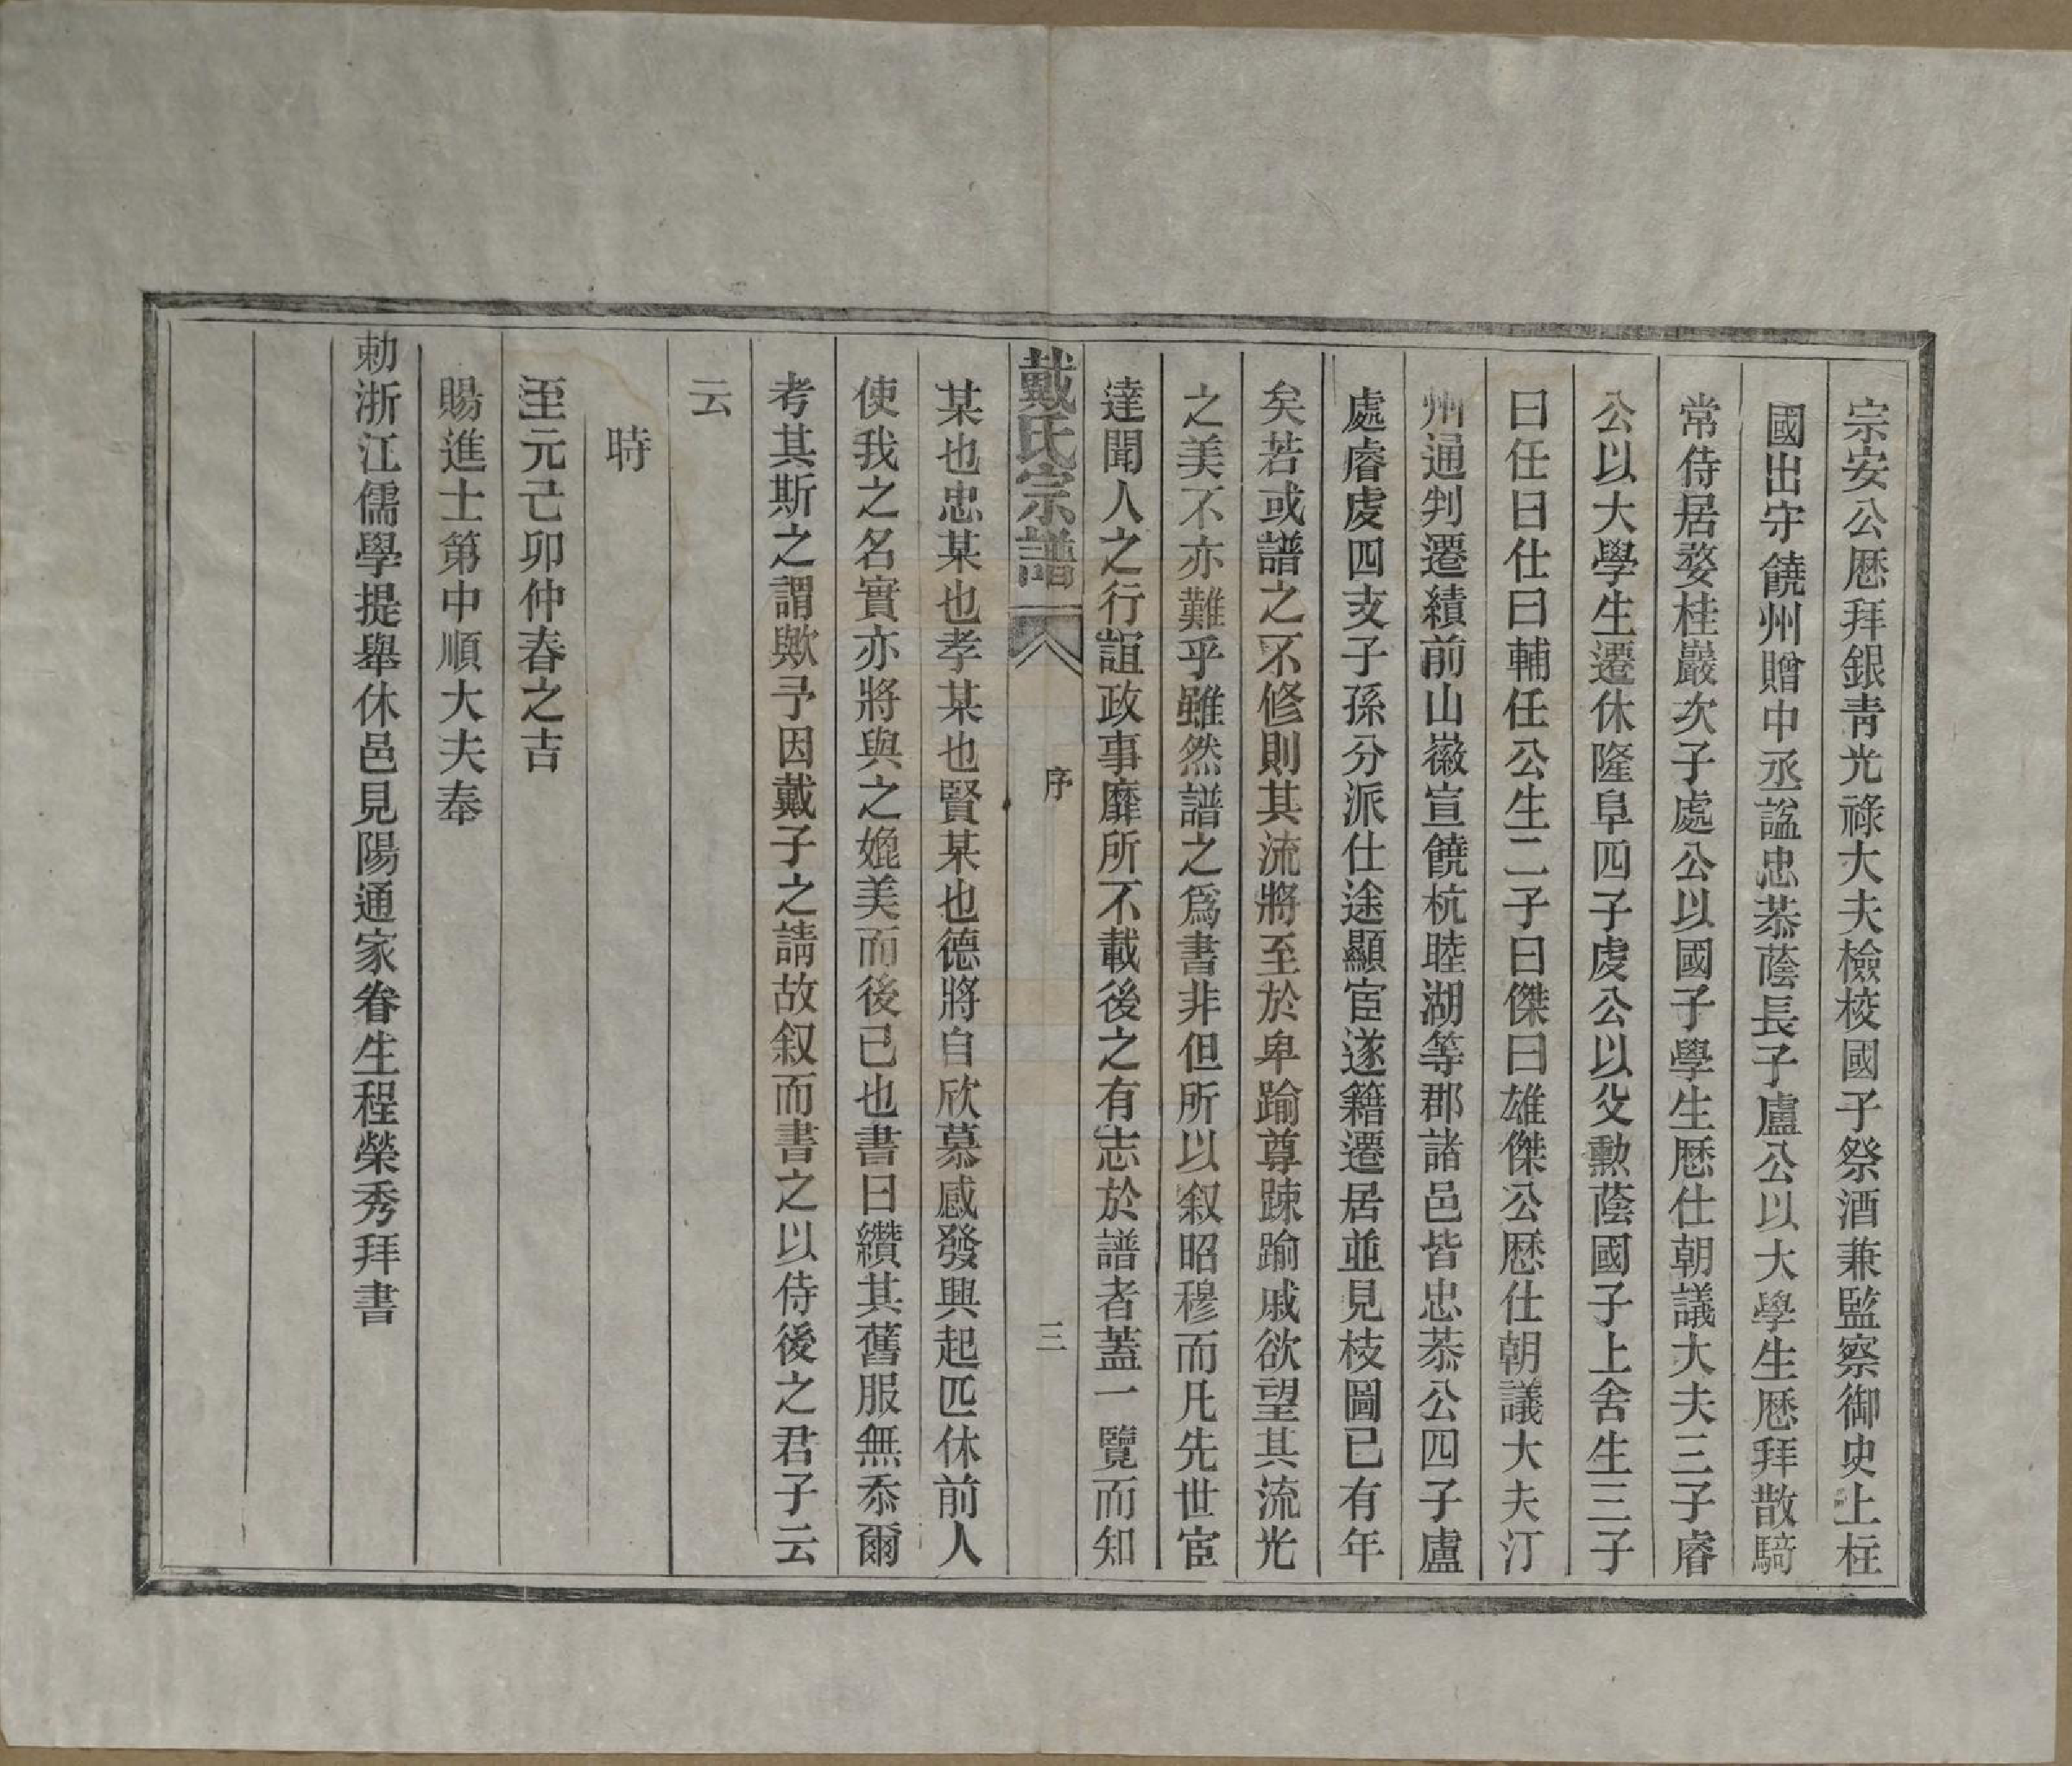 宗安公歷拜銀青光祿大夫檢校國子祭酒兼監察御史上柱
國出守饒州贈中丞諡忠恭蔭長子盧公以大學生歷拜散騎
常侍居婺桂巖次子處公以國子學生歷仕朝議大夫三子睿
公以大學生遷休隆阜四子虔公以父勳蔭國子上舍生三子
曰任曰仕曰輔任公生二子曰傑曰雄傑公歷仕朝議大夫汀
州通判遷績前山徽宣饒杭睦湖等郡諸邑皆忠恭公四子盧
處睿虔四支子孫分派仕途顯宦遂籍遷居並見枝圖已有年
矣若或譜之不修則其流將至於卑踰尊踈踰戚欲望其流光
之美不亦難乎雖然譜之爲書非但所以叙昭穆而凡先世宦
達聞人之行誼政事靡所不載後之有志於譜者蓋一覽而知
戴氏宗譜 序 三
某也忠某也孝某也賢某也德將自欣慕感發興起匹休前人
使我之名實亦將與之媲美而後已也書曰纘其舊服無忝爾
考其斯之謂歟予因戴子之請故叙而書之以侍後之君子云
云
時
至元己卯仲春之吉
賜進士第中順大夫奉
勅浙江儒學提舉休邑見陽通家眷生程榮秀拜書